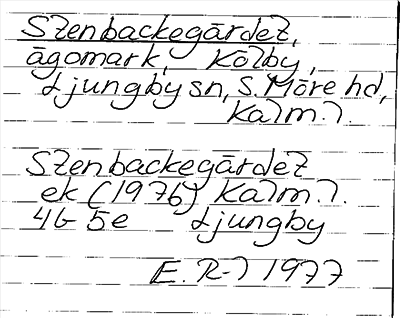 Stenbackegärdet,
ägomark, Kölby,
Ljungby sn, S. Möre hd,
Kalm. l.
Stenbackegärdet
ek (1976) Kalm. l.
4G 5e Ljungby
E. R-l 1977